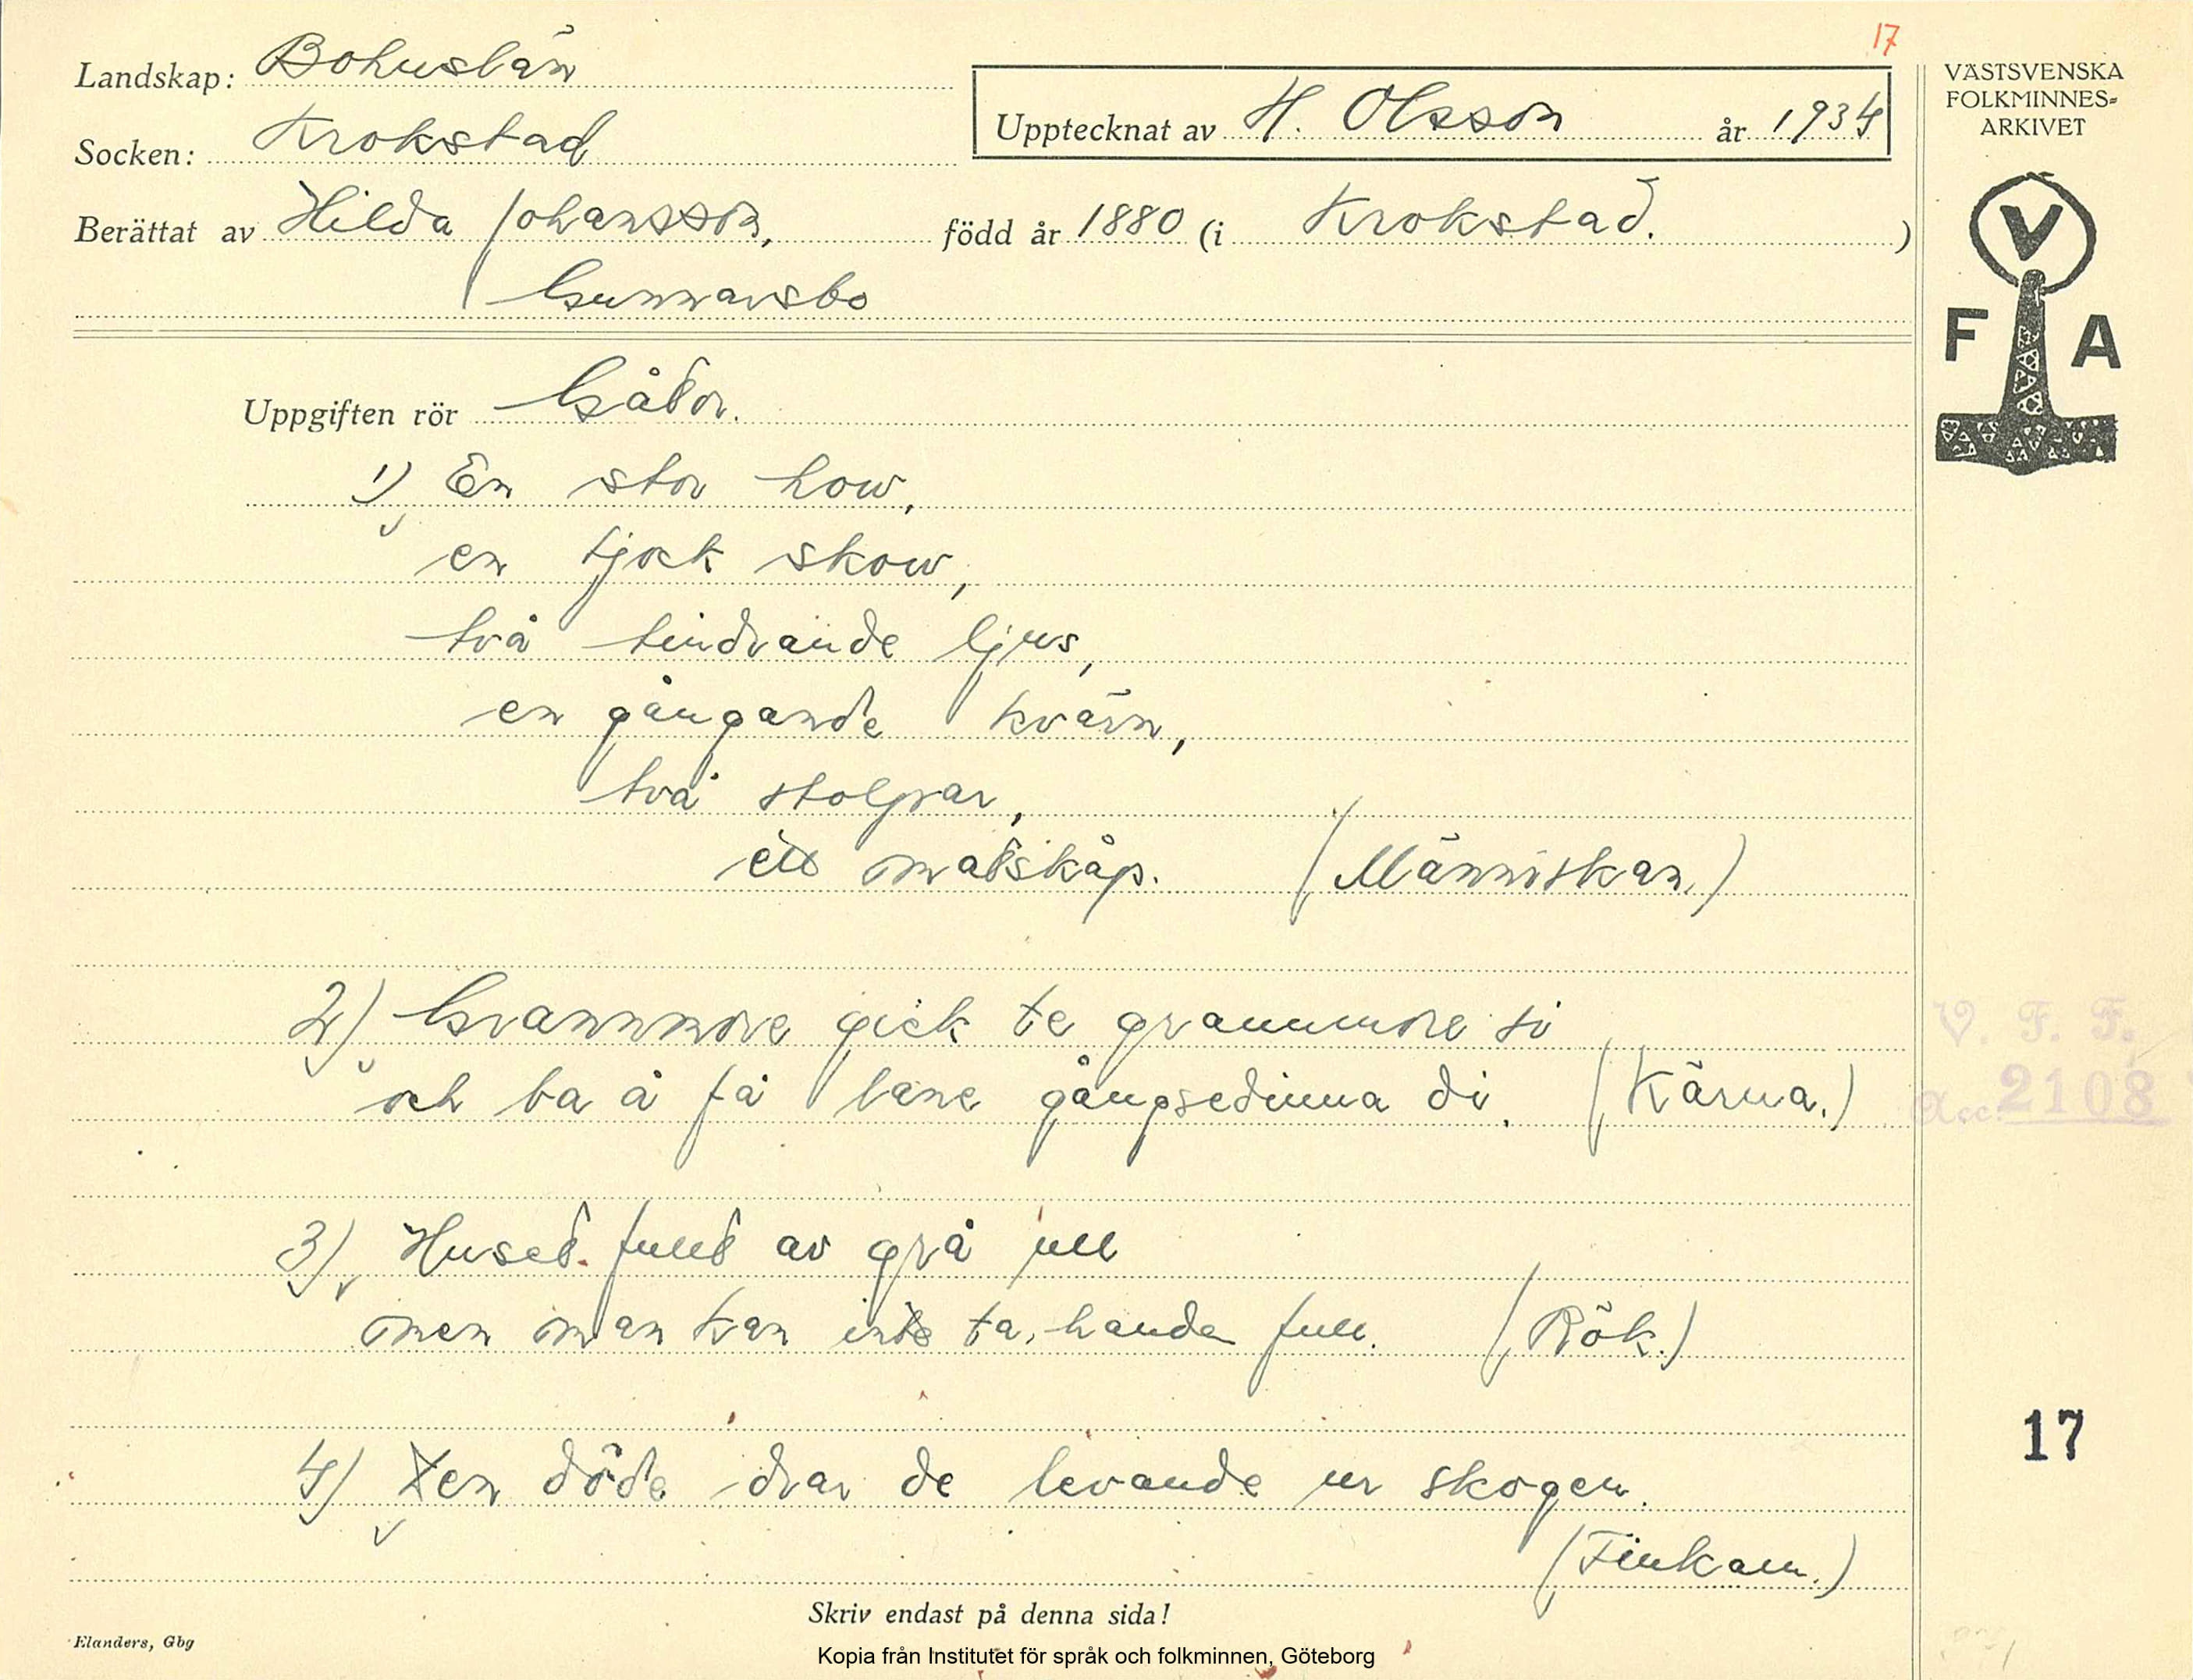 17
Landskap: Bohuslän
Socken: Krokstad
Upptecknat av H. Olsson år 1934
Berättat av Hilda Johansson, född år 1880 (i Krokstad. )
Gunnarsbo
VÄSTSVENSKA
FOLKMINNES=
ARKIVET
V
F A
Uppgiften rör Gåtor.
1) En stor how,
en tjock skow,
två tindrande ljus,
en gångande kvärn,
två stolpar,
ett matskåp. (Människan.)
2) Grannmore gick te grannmore si
och ba å få låne gångsedinna di. (Kärna.)
V. F. F.
Acc. 2108
3) Huset fullt av grå ull
men man kan inte ta, handa full. (Rök.)
17
4) Den döde drar de levande ur skogen.
(Finkam.)
Skriv endast på denna sida!
Elanders, Gbg
Kopia från Institutet för språk och folkminnen, Göteborg